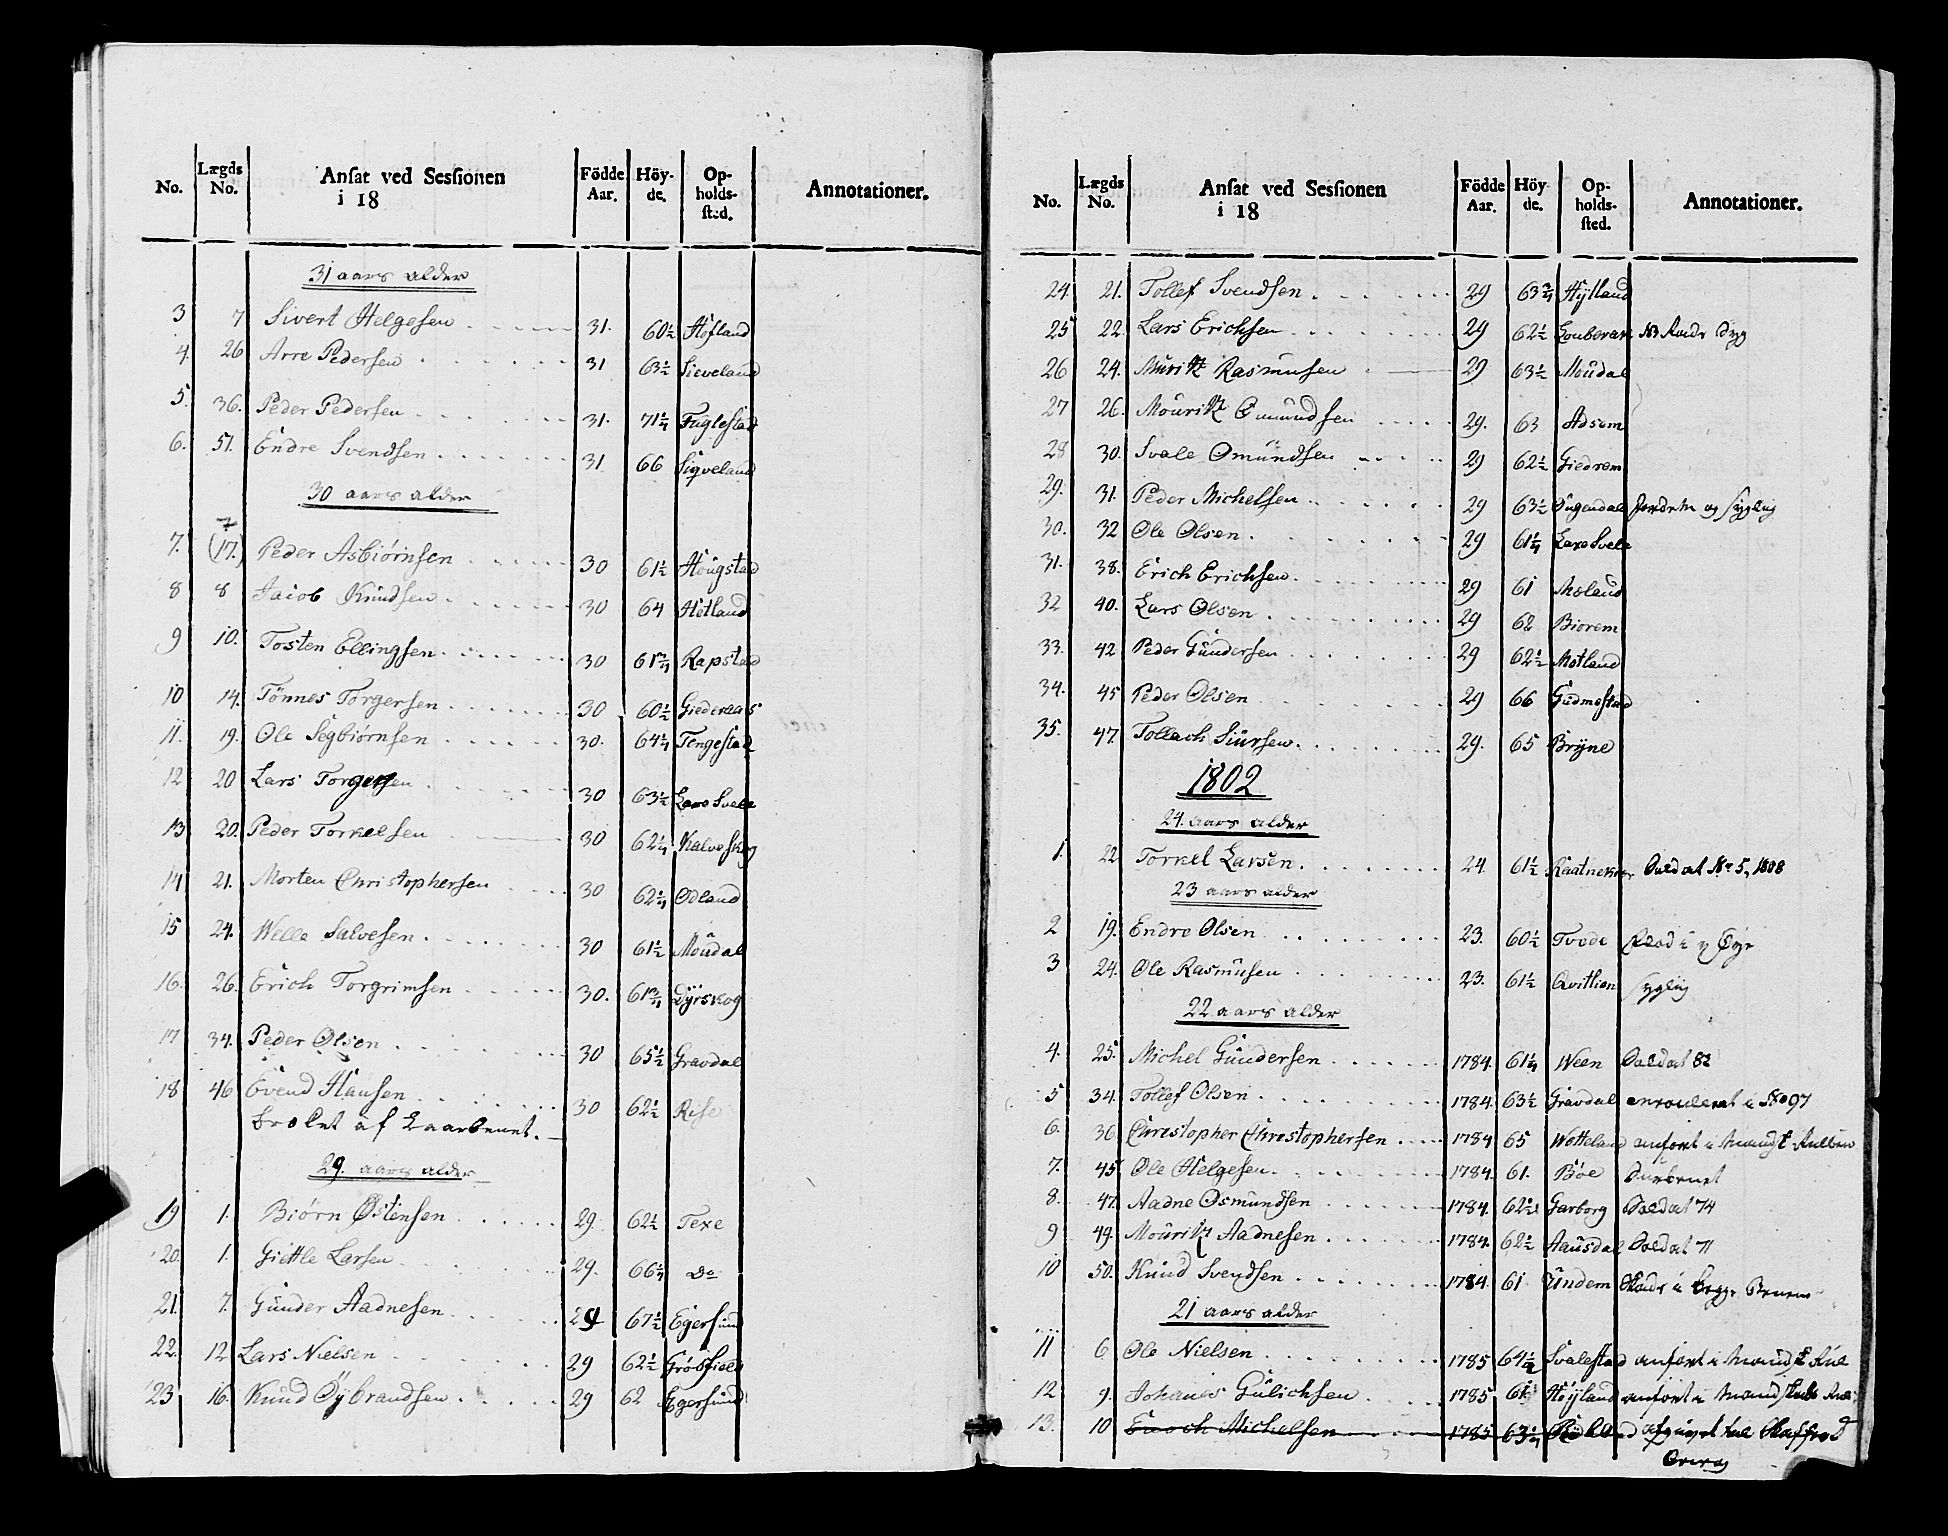 No. Lægds No. Ansat ved Sessionen i 18 Födde Aar. Höyde. Opholds-sted. Annotationer.
31 aars alder
3 7 Sivert Helgesen 31. 60½ Hofland
4. 26 Arre Pedersen 31 63½ Sieveland
5. 36. Peder Pedersen 31. 71¼ Fuglestad
6. 51. Endre Svendsen 31 66 Sigveland
30 aars alder
7
7. (17.) Peder Asbiørnsen 30 61½ Hougstad
8 8 Jaiob Knudsen 30 64 Hetland
9 10. Tosten Ellingsen 30 61¾ Rapstad
10 14. Tönnes Torgersen 30 60½ Giederaas
11. 19. Ole Segbiørnsen 30. 64¼ Tengestad
12 20 Lars Torgersen 30 63½ Lars Svele
13 20. Peder Torkelsen 30 62¼ Kalveskog
14 21. Morten Christophersen 30 62¼ Odland
15 24. Welle Salvesen 30 61½ Moudal
16. 26. Erich Torgrimsen 30. 61¾ Dyrskog
17 34. Peder Olsen 30 65½ Gravdal
18 46 Evend Hansen 30 62½ Rise
brølet af Laarbenet.
29. aars alder
19 1. Biørn Østensen 29. 62½ Texe
20. 1. Giettle Larsen 29. 66¼ Do
21. 7. Gunder Aadnesen 29 67½ Egersund
22. 12 Lars Nielsen 29 62½ Grøsfield
23 16. Knud Sybrandsen 29 62 Egersund
No. Lægds No. Ansat ved Sessionen i 18 Födde Aar. Höyde. Opholds-sted. Annotationer.
24. 21. Tollef Svendsen 29 63¾ Hylland
25 22. Lars Erichsen 29 62½
26 24. Muritz Rasmusen 29 63½ Moudal
27 26. Mouritz Omundsen 29. 63 Adsem
28 30. Svale Omundsen 29 62½ Giedrem
29. 31. Peder Michelsen 29 63½ og syglig
30. 32 Ole Olsen 29 61¼ Lars Svele
31. 38. Erich Erichsen 29 61 Moland
32 40. Lars Olsen 29 62 Biorem
33. 42 Peder Gundersen 29 62½ Motland
34. 45 Peder Olsen 29 66 Gudmestad
35. 47. Tollach Siursen 29. 65 Bryne
1802
24. aars alder
1. 22 Torkel Larsen 24. 61½ Soldat No 5, 1808
23 aars alder
2 19. Endre Olsen 23. 60½ Tvede
3 24. Ole Rasmusen 23. 61½ Qvitlien syglig
22 aars alder
4. 25. Michel Gundersen 1784. 61¼ Ween Soldat 82
5 34. Tollef Olsen 1784. 63½ Gravdal enroulleret i No 97
6. 36. Christopher Christophersen 1784 65 Wetteland anført i Mandt Rullen
7. 45 Ole Helgesen 1784. 61. Bøe
8. 47. Aadne Osmundsen 1784. 62½ Garborg Soldat 74
9 49. Mouritz Aadnesen 1784. 62½ Aausdal Soldat 71
10 50. Knud Svendsen 1784. 61 Undem Skade i begge Benene
21 aars alder
11 6 Ole Nielsen 1785 64½ Svalestad anført i Mandt Rul
12 9. Johanes Gulichsen 1785 61 Høyland anført i Mandskabs Rul
13. 10 Enoch Michelsen 1785 63¼